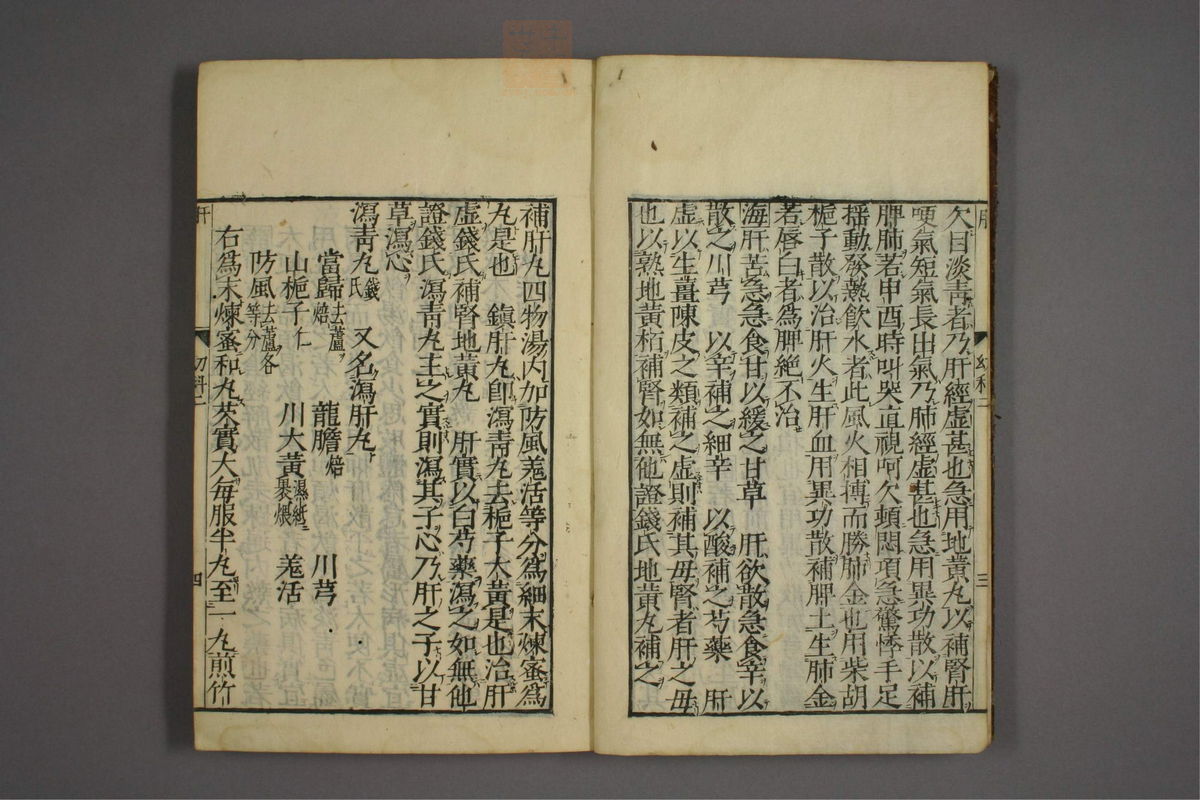 欠目淡青者乃肝經虛甚也急用地黄丸以補腎肝
哽氣短氣長出氣乃肺經虛甚也急用異功散以補
脾肺若申酉時叫哭直視呵欠頓悶項急驚悸手足
揺動發熱飲水者此風火相搏而勝肺金也用柴胡
梔子散以治肝火生肝血用異功散補脾土生肺金
若唇白者爲脾絶不治
海肝苦急急食甘以緩之甘草　肝欲散急食辛以
散之川芎　以辛補之細辛　以酸補之芍藥　肝
虛以生薑陳皮之類補之虛則補其母腎者肝之母
也以熟地黄栢補腎如無他證錢氏地黄丸補之
三
補肝丸四物湯内加防風羗活等分爲細末煉蜜爲
丸是也　鎮肝丸即瀉青丸去梔子大黄是也治肝
虛錢氏補腎地黄丸　肝實以白芍藥瀉之如無他
證錢氏瀉青丸主之實則瀉其子心乃肝之子以甘
草瀉心
瀉青丸錢氏　又名瀉肝丸
當歸去蘆焙　龍膽焙　川芎
山梔子仁　川大黄濕紙裹煨　羗活
防風去蘆各等分
右爲末煉蜜和丸芡實大毎服半丸至一丸煎竹
肝
幼科二
四